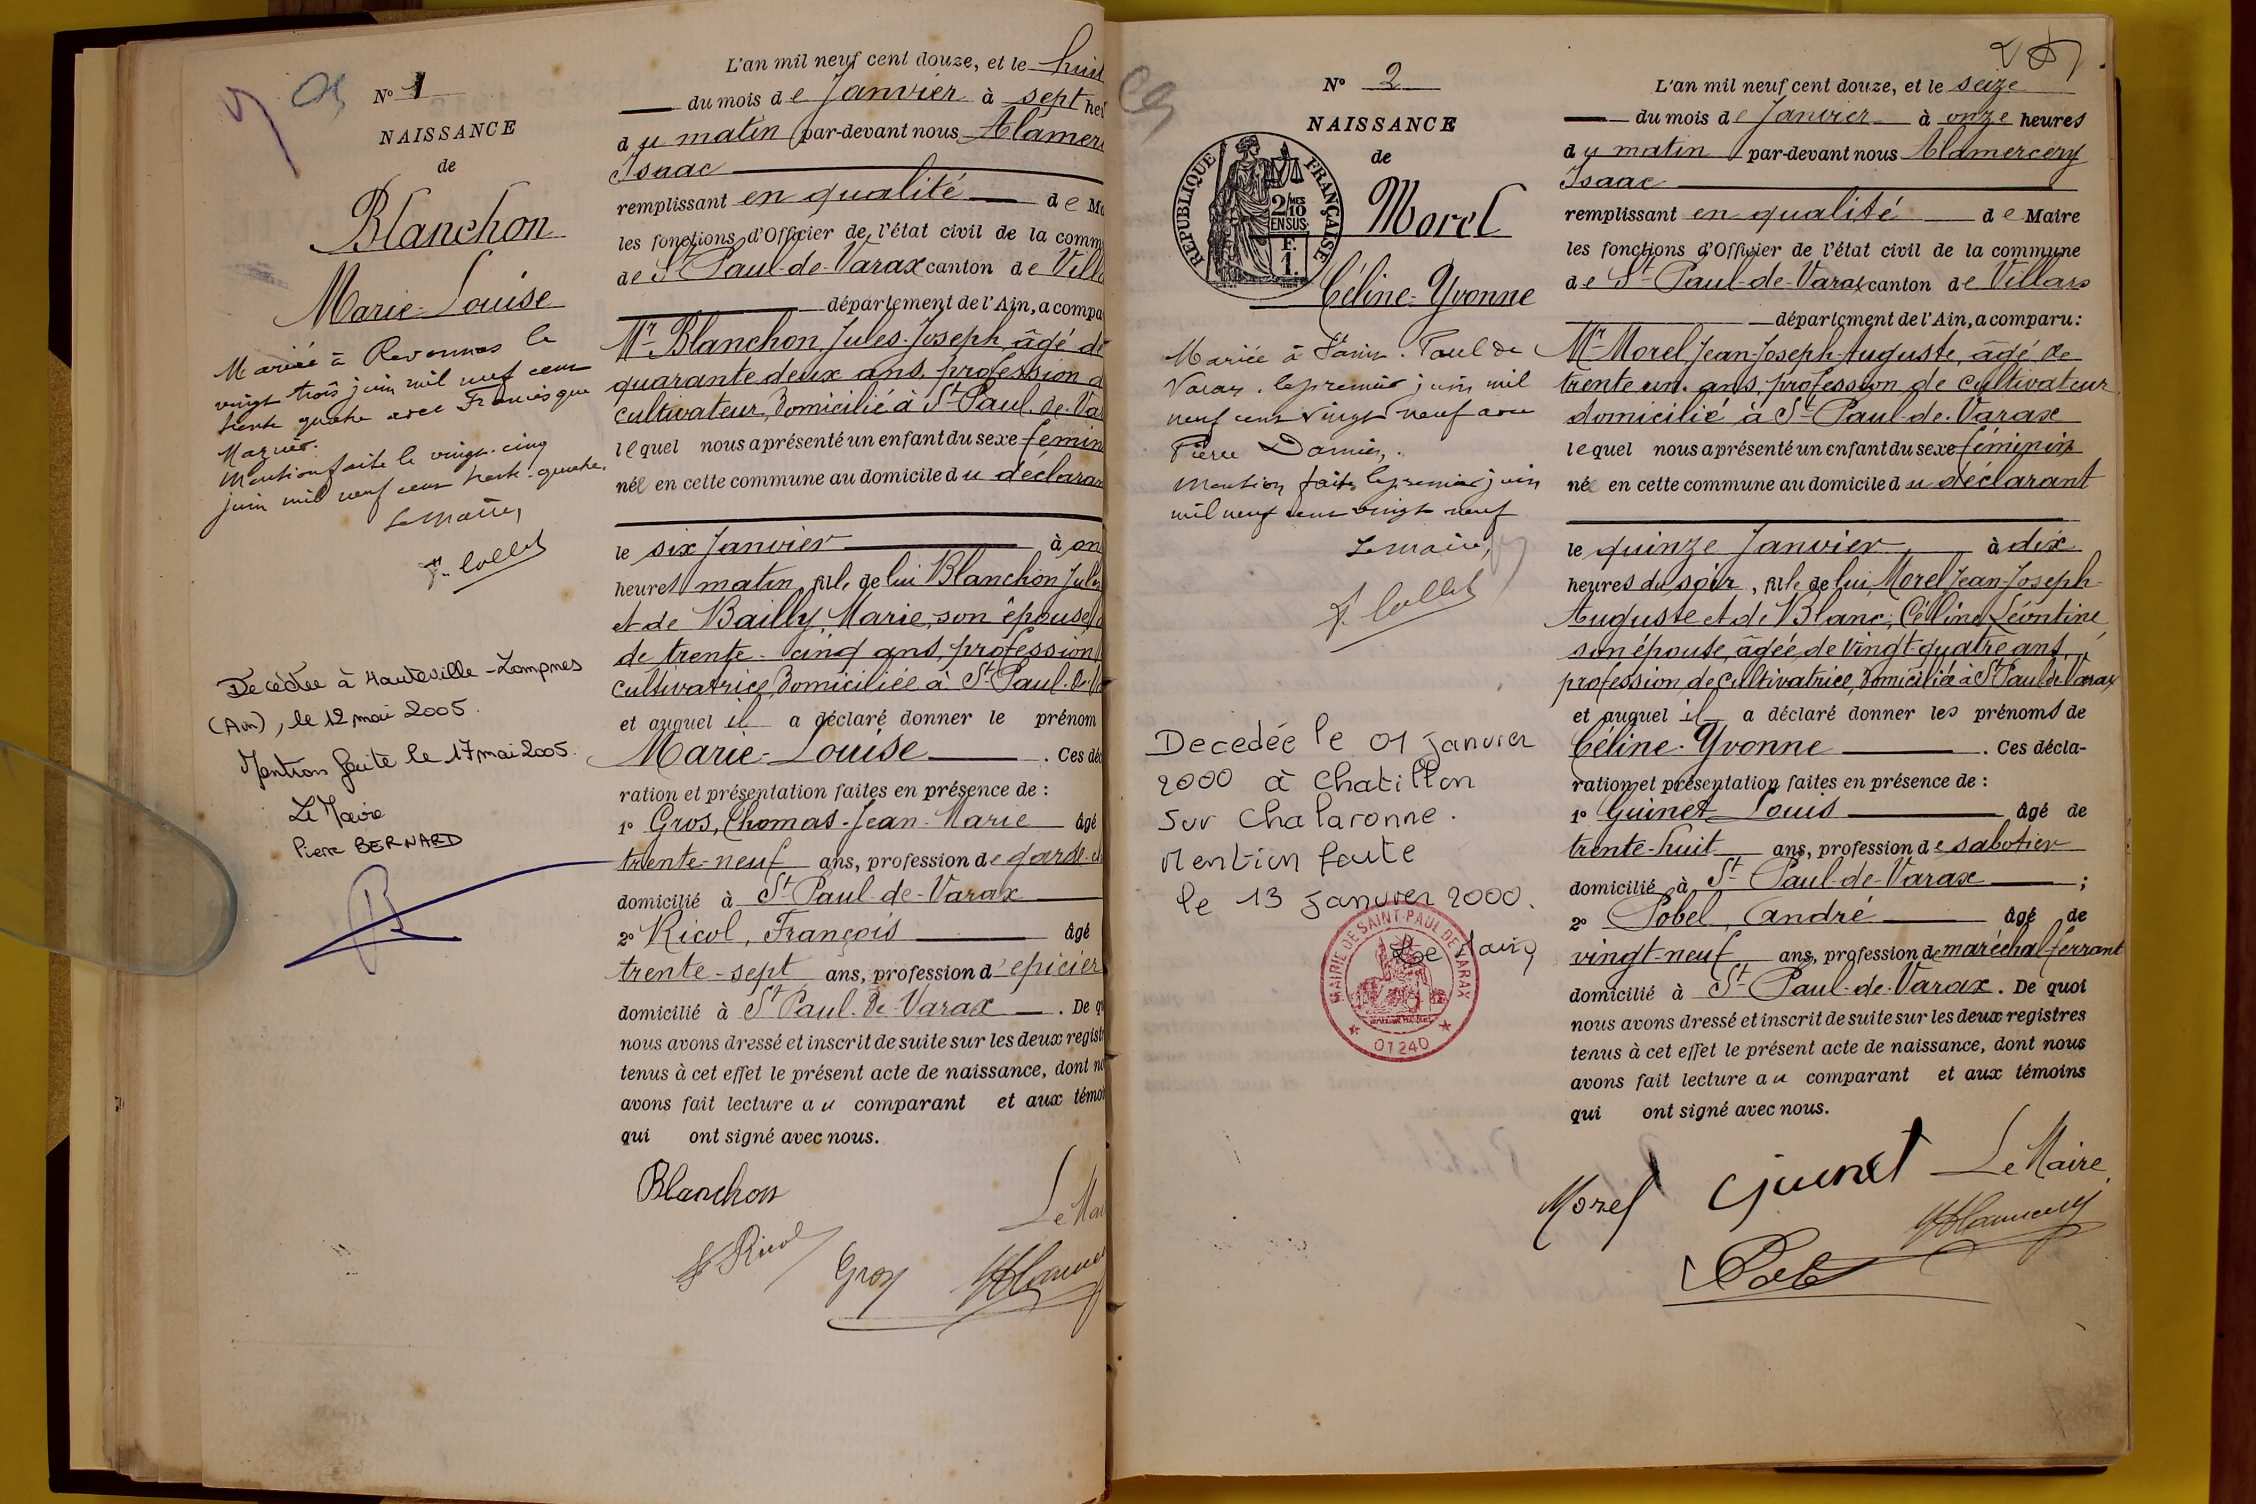 N° 1
NAISSANCE
de
Blanchon
Marie-Louise
Mariée à Revonnas le
vingt trois juin mil neuf cent
trente quatre avec François que
Mention faite le vingt-cinq
juin mil neuf cent trente-quatre.
Le maire,
F. Collet
Decédée à Hauteville-Lompnes
(Ain), le 12 mai 2005.
Mention faite le 17 mai 2005.
Le Maire
Pierre BERNARD
L'an mil neuf cent douze, et le huit
du mois de Janvier à sept heu
du matin par-devant nous Alamerc
Isaac
remplissant en qualité de Ma
les fonctions d'Officier de l'état civil de la comm
de St Paul-de-Varax canton de Villa
département de l'Ain, a compa
Mr Blanchon Jules-Joseph, âgé de
quarante deux ans, profession d
cultivateur, domicilié à St Paul-de-Va
lequel nous a présenté un enfant du sexe fémin
née en cette commune au domicile du déclaran
le six Janvier à on
heures matin, fille de lui Blanchon Jules
et de Bailly, Marie, son épouse,
de trente-cinq ans, profession
cultivatrice, domiciliée à St Paul-de-V
et auquel il a déclaré donner le prénom
Marie-Louise. Ces déc
ration et présentation faites en présence de :
1° Gros, Thomas-Jean-Marie âgé
trente-neuf ans, profession de garde
domicilié à St Paul-de-Varax
2° Ricol, François âgé
trente-sept ans, profession d'épicier
domicilié à St Paul-de-Varax. De q
nous avons dressé et inscrit de suite sur les deux regist
tenus à cet effet le présent acte de naissance, dont no
avons fait lecture au comparant et aux témoi
qui ont signé avec nous.
Blanchon
Le Mai
F Ricol
Gros
N° 2
NAISSANCE
de
REPUBLIQUE FRANÇAISE
2/10 MES
EN SUS
F.
1.
Morel
Céline-Yvonne
Mariée à Saint-Paul de
Varax, le premier juin mil
neuf cent vingt neuf avec
Pierre
Mention faite le premier juin
mil neuf cent vingt neuf
Le maire,
F. Collet
Decedée le 01 janvier
2000 à Chatillon
sur Chalaronne.
Mention faite
le 13 janvier 2000.
Le Maire
MAIRIE DE SAINT-PAUL DE VARAX
01240
L'an mil neuf cent douze, et le seize
du mois de Janvier à onze heures
du matin par-devant nous Alamercery
Isaac
remplissant en qualité de Maire
les fonctions d'Officier de l'état civil de la commune
de St-Paul-de-Varax canton de Villars
département de l'Ain, a comparu :
Mr Morel Jean-Joseph-Auguste, âgé de
trente un ans, profession de cultivateur
domicilié à St-Paul-de-Varax
lequel nous a présenté un enfant du sexe féminin
née en cette commune au domicile du déclarant
le quinze Janvier à dix
heures du soir, fille de lui, Morel Jean-Joseph-
Auguste et de Blanc, Céline Léontine,
son épouse, âgée de vingt-quatre ans,
profession de cultivatrice, domiciliée à St Paul-de-Varax
et auquel il a déclaré donner les prénoms de
Céline-Yvonne. Ces décla-
ration et présentation faites en présence de :
1° Guinet Louis âgé de
trente-huit ans, profession de sabotier
domicilié à St-Paul-de-Varax ;
2° Pobel, André âgé de
vingt-neuf ans, profession de maréchal ferrant
domicilié à St-Paul-de-Varax. De quoi
nous avons dressé et inscrit de suite sur les deux registres
tenus à cet effet le présent acte de naissance, dont nous
avons fait lecture au comparant et aux témoins
qui ont signé avec nous.
Morel
Guinet
Le Maire,